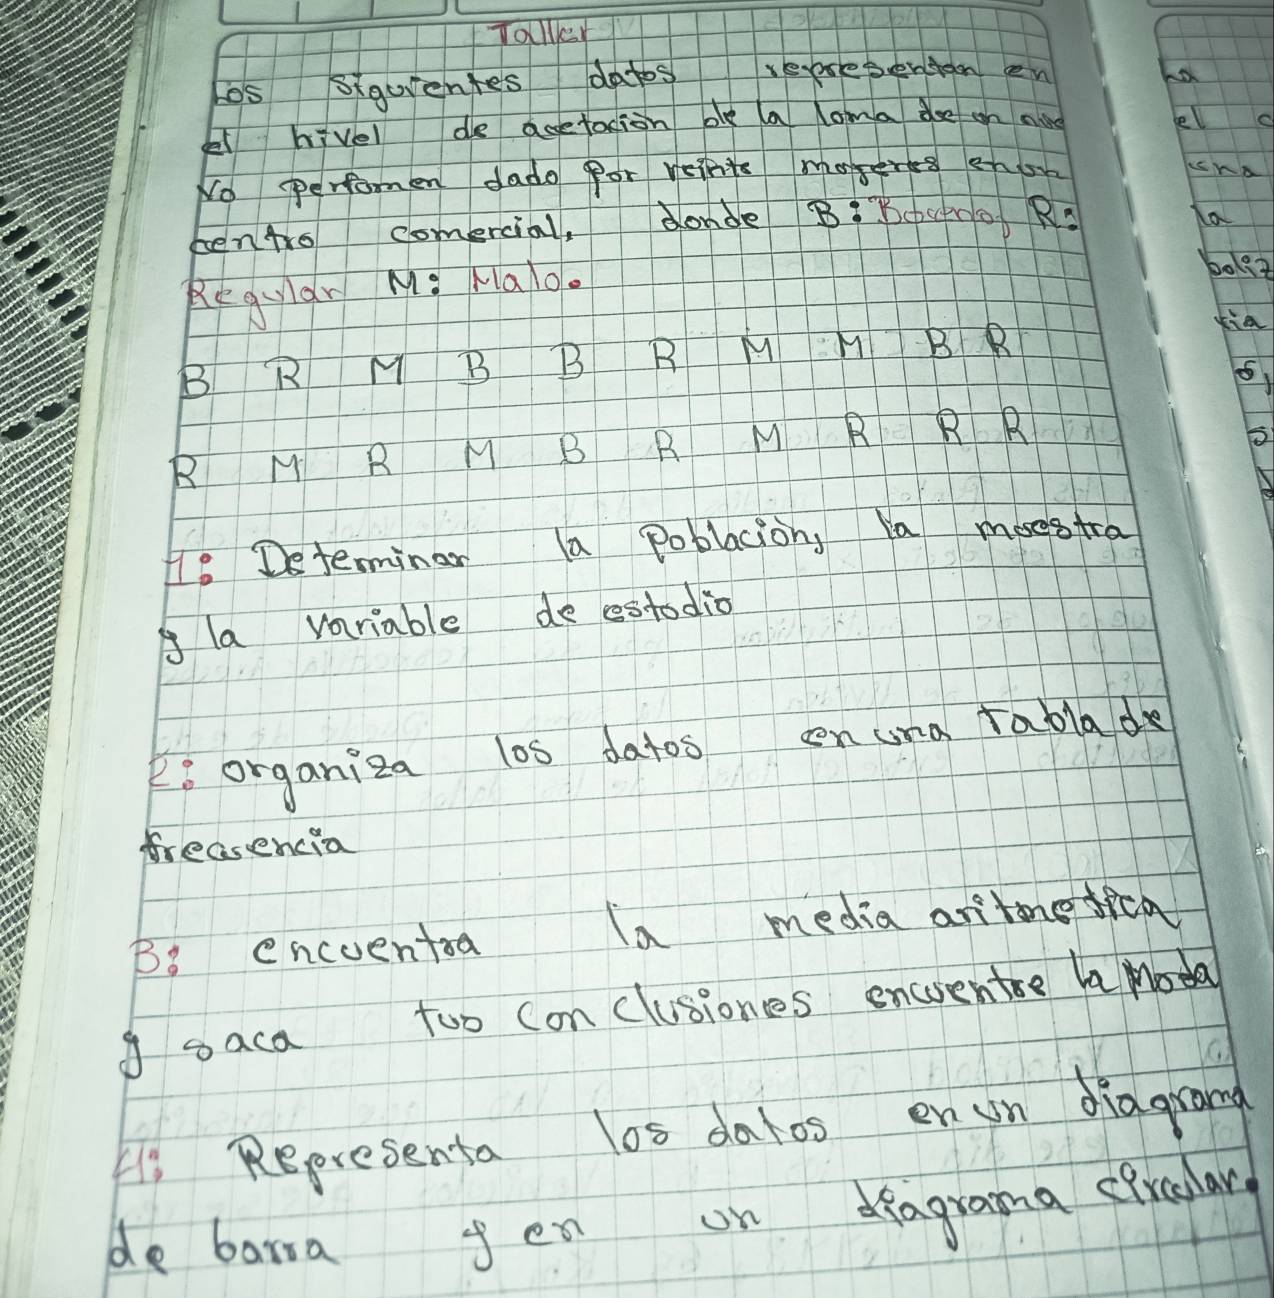 Taller
Los siguientes datos representan en
el nivel de acetación de la loma de un
vo perfomen dado por veinte mogeres en un
centro comercial, donde B: Bueno, R:
Regular M: Malo.
B R M B B R M M B R
R M R M B R M R R R
1: Determinar la población, la moestra
y la variable de estodio
2: organiza los datos en una tabla de
frecuencia
3: encuentra la media aritmetica
y saca tus conclusiones encuentre la Moda
4: Representa los datos en un diagrama
de barra y en un diagrama circular.
ha
el c
una
la
boliz
ria